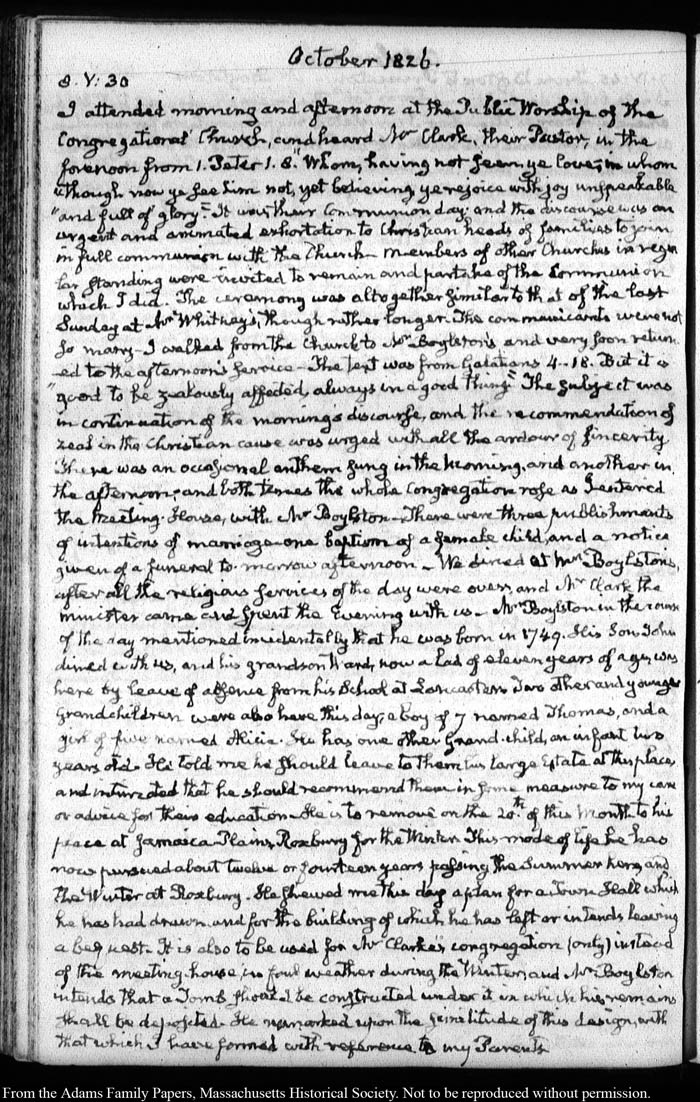 October 1826.
8. V: 30
I attended morning and afternoon at the Public Worship of the
Congregational Church, and heard Mr Clark, their Pastor, in the
forenoon from 1. Peter 1. 8. "Whom, having not seen, ye love; in whom
"though now ye see him not, yet believing ye rejoice with joy unspeakable
"and full of glory." It was their Communion day; and the discourse was an
urgent and animated exhortation to Christian heads of families to join
in full communion with the Church. Members of other Churches in regu
lar standing were invited to remain and partake of the Communion
which I did. The ceremony was altogether similar to that of the last
Sunday at Mr Whitney's, though rather longer. The communicants were not
so many. I walked from the Church to Mr Boylston's and very soon return
ed to the afternoon service. The text was from Galatians 4. 18. But it is
"good to be zealously affected, always in a good thing." The subject was
in continuation of the morning's discourse, and the recommendation of
zeal in the Christian cause was urged with all the ardour of sincerity
There was an occasional anthem sung in the morning, and another in
the afternoon, and both times the whole Congregation rose as I entered
the Meeting-House, with Mr Boylston. There were three publishments
of intentions of marriage one baptism of a female child, and a notice
given of a funeral to-morrow afternoon. We dined at Mr Boylston's,
after all the religious services of the day were over, and Mr Clark the
minister came and spent the Evening with us. Mr Boylston in the course
of the day mentioned incidentally that he was born in 1749. His Son John
dined with us, and his grandson Ward, now a Lad of eleven years of age, was
here by leave of absence from his School at Lancaster. Two other and younger
Grandchildren were also here this day, a boy of 7 named Thomas, and a
girl of five named Alicia. He has one other Grand-child, an infant two
years old. He told me he should leave to them his large Estate at this place,
and intimated that he should recommend them in some measure to my care
or advice for their education. He is to remove on the 20th of this Month to his
place at Jamaica Plain, Roxbury for the Winter. This mode of life he has
now pursued about twelve or fourteen years passing the Summer here, and
the Winter at Roxbury. He shewed me this day a plan for a Town Hall which
he has had drawn, and for the building of which he has left or intends leaving
a bequest. It is also to be used for Mr Clarke's congregation (only) instead
of the meeting-house, in foul weather during the Winter, and Mr Boylston
intends that a Tomb should be constructed under it in which his remains
shall be deposited. He remarked upon the similitude of this design, with
that which I have formed with reference to my Parents
From the Adams Family Papers, Massachusetts Historical Society. Not to be reproduced without permission.